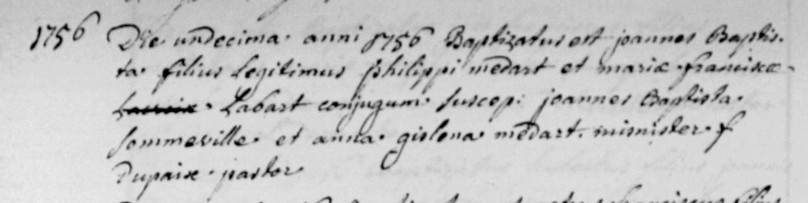 1756 Die undecima anni 1756 Baptizatus est joannes Baptis-
ta filius legitimus philippi medart et mariæ francisce
Lacroix Labart conjugum suscep: joannes Baptista
Sommeville et anna gislena medart. minister f
Dupaix pastor